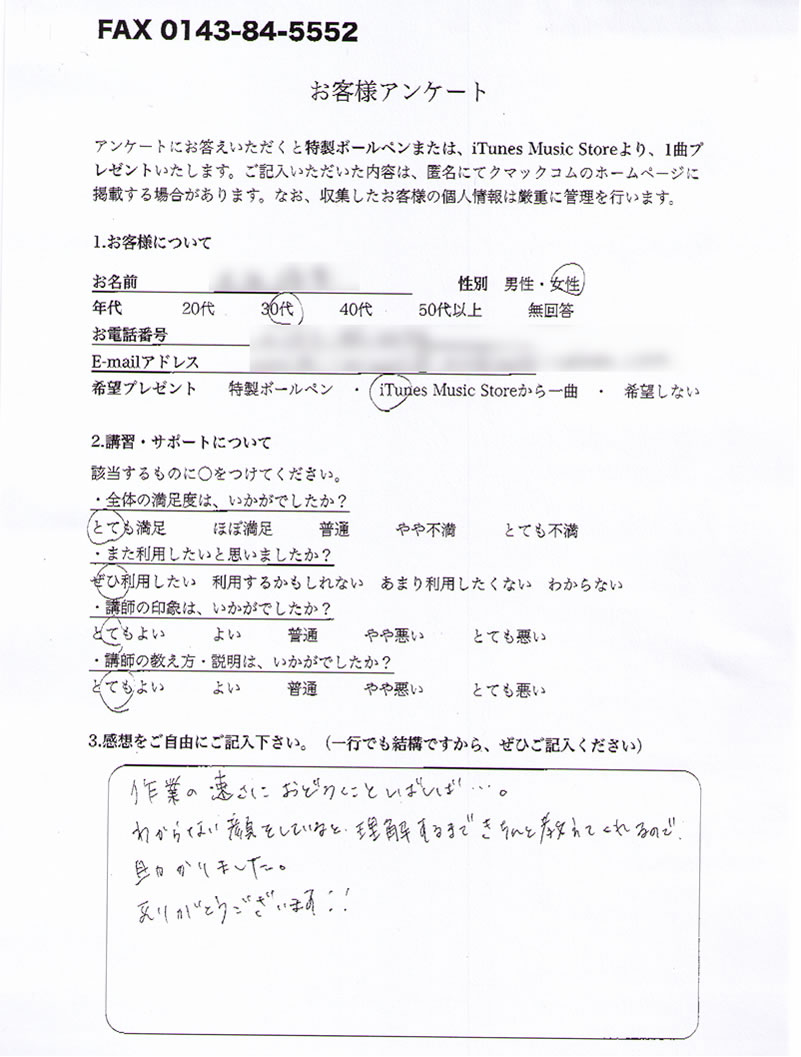 FAX 0143-84-5552
お客様アンケート
アンケートにお答えいただくと特製ボールペンまたは、iTunes Music Storeより、1曲プ
レゼントいたします。ご記入いただいた内容は、匿名にてクマックコムのホームページに
掲載する場合があります。なお、収集したお客様の個人情報は厳重に管理を行います。
1.お客様について
お名前 性別 男性・女性
年代 20代 30代 40代 50代以上 無回答
お電話番号
E-mailアドレス
希望プレゼント 特製ボールペン ・ iTunes Music Storeから一曲 ・ 希望しない
2.講習・サポートについて
該当するものに○をつけてください。
・全体の満足度は、いかがでしたか？
とても満足 ほぼ満足 普通 やや不満 とても不満
・また利用したいと思いましたか？
ぜひ利用したい 利用するかもしれない あまり利用したくない わからない
・講師の印象は、いかがでしたか？
とてもよい よい 普通 やや悪い とても悪い
・講師の教え方・説明は、いかがでしたか？
とてもよい よい 普通 やや悪い とても悪い
3.感想をご自由にご記入下さい。（一行でも結構ですから、ぜひご記入ください）
作業の速さにおどろくことしばしば…。
わからない顔をしていると、理解するまできちんと教えてくれるので、
助かりました。
ありがとうございます!!